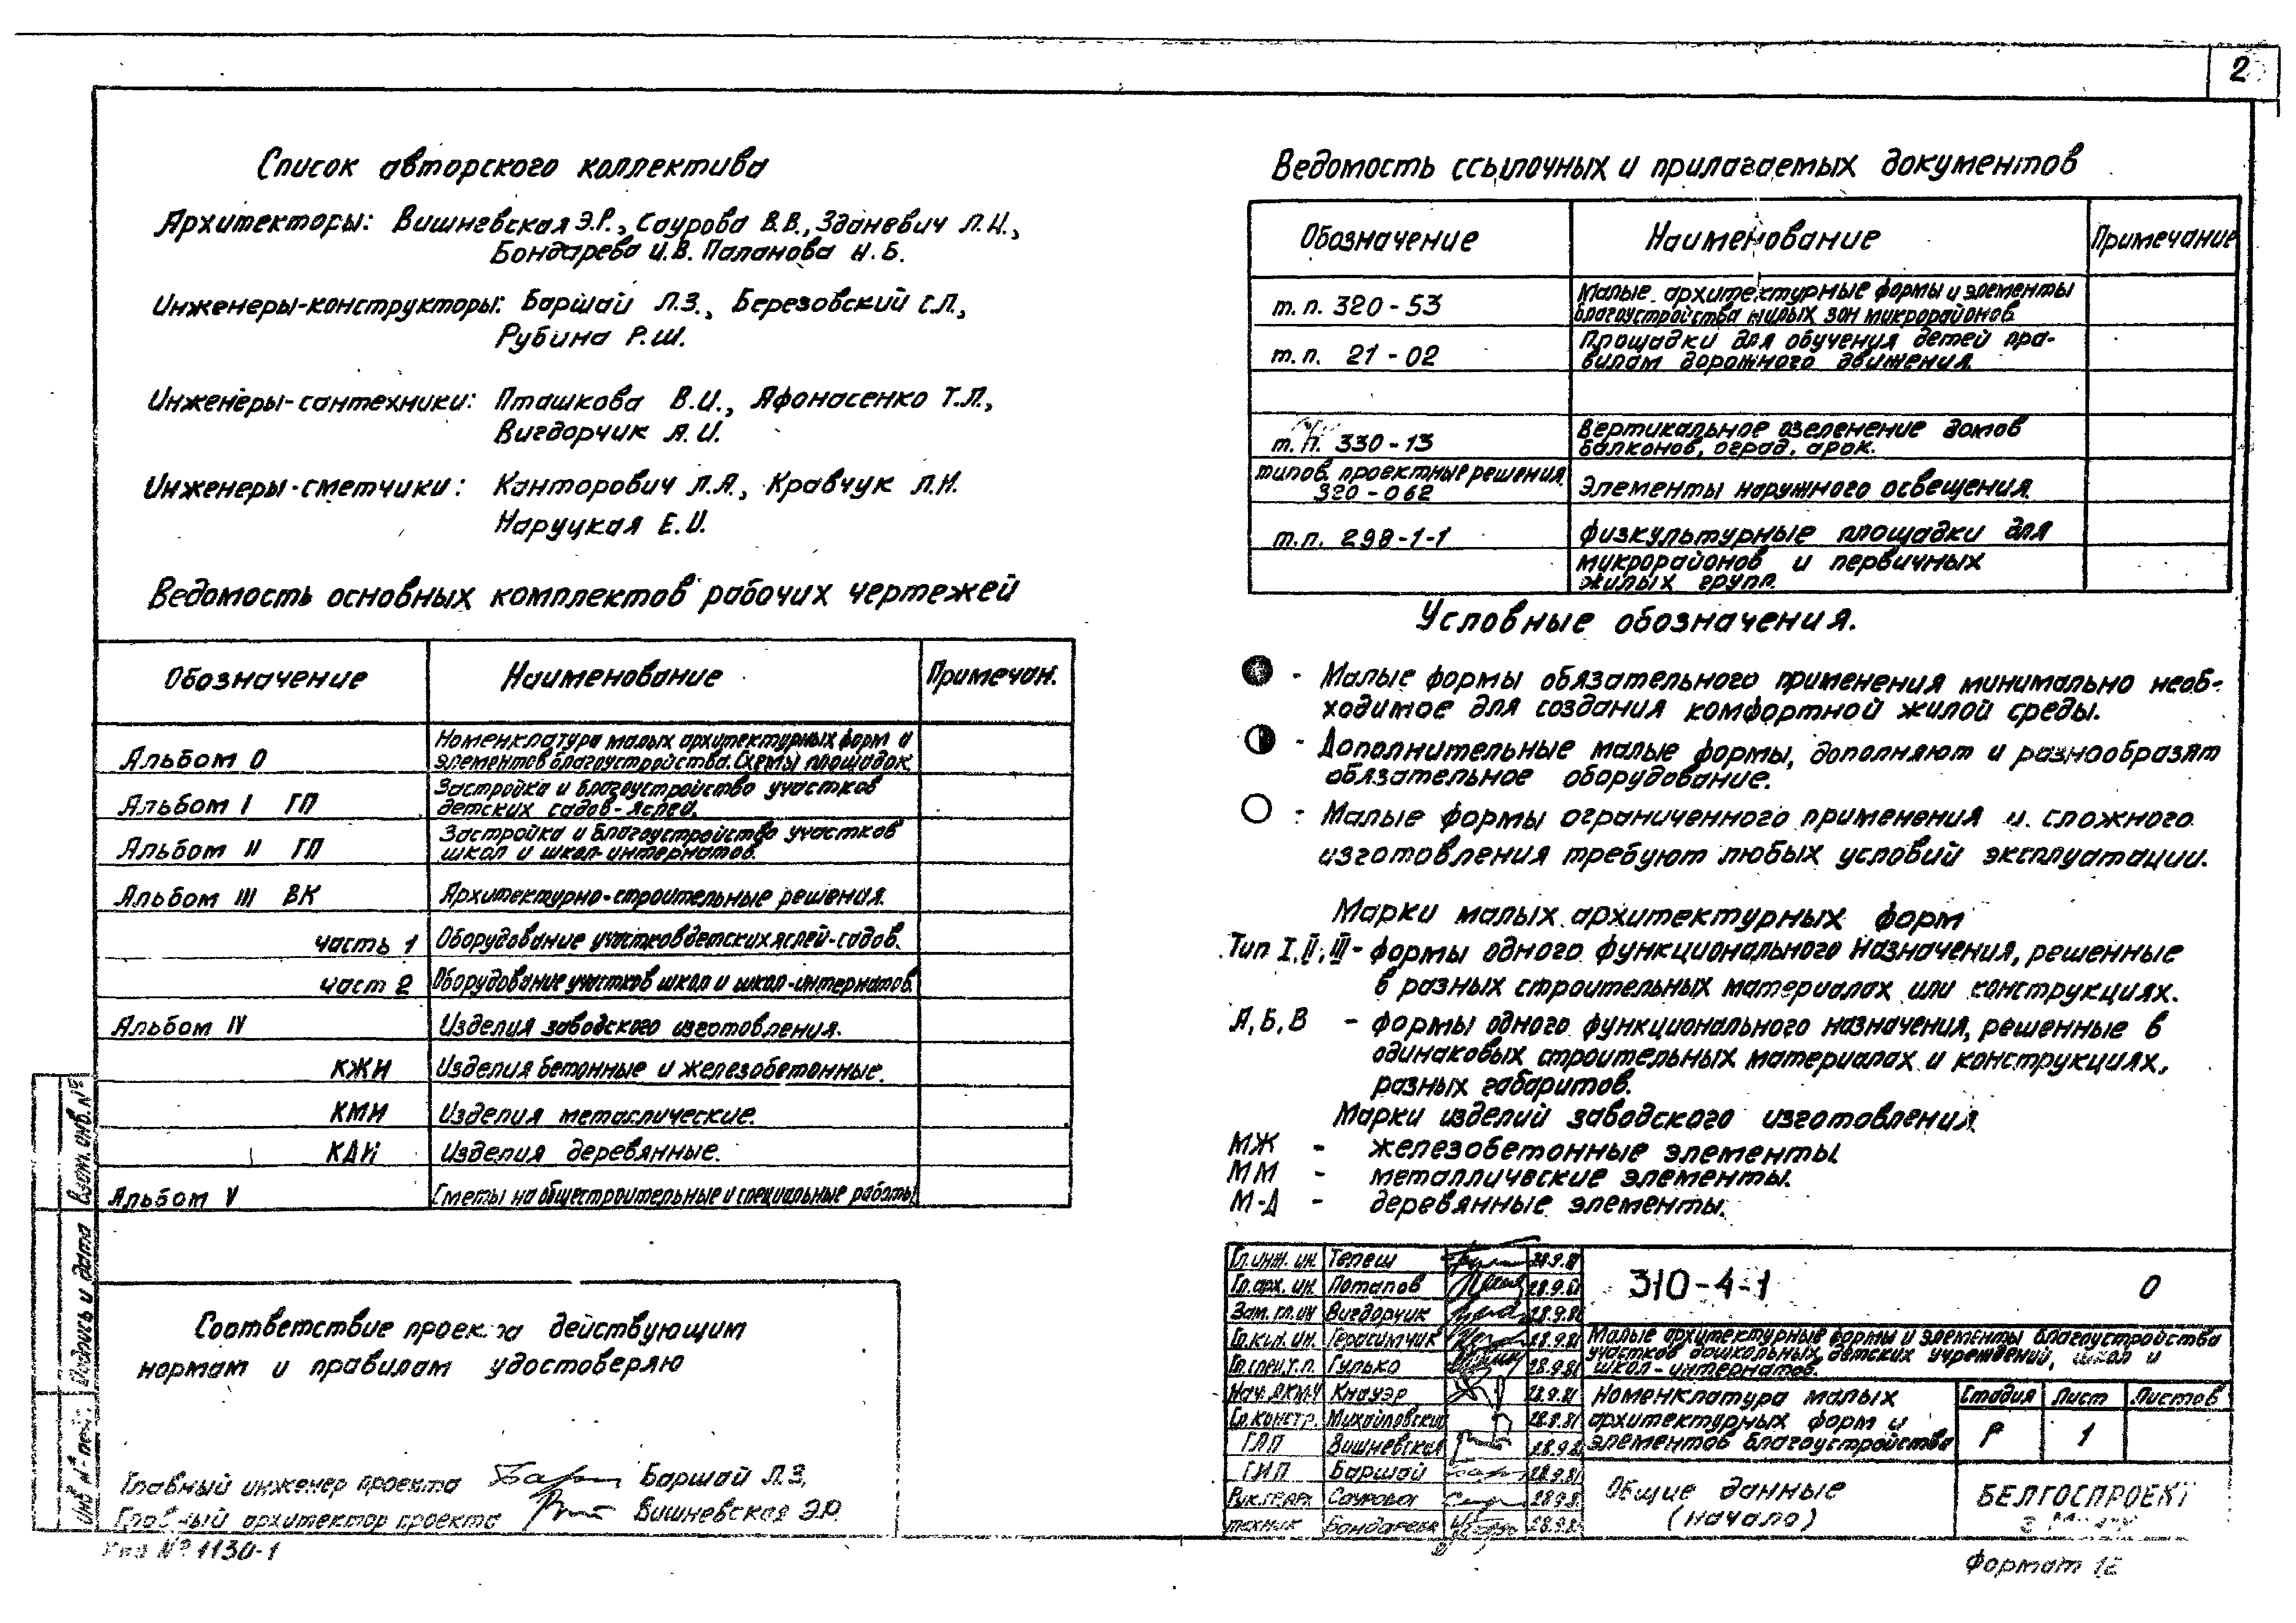 2
Список авторского коллектива
Архитекторы: Вишневская Э.Р., Саурова В.В., Зданевич Л.Н.,
Бондарева И.В. Паланова Н.Б.
Инженеры-конструкторы: Баршай Л.З., Березовский С.Л.,
Рубина Р.Ш.
Инженеры-сантехники: Пташкова В.И., Афонасенко Т.Л.,
Вигдорчик А.И.
Инженеры-сметчики: Канторович Л.А., Кравчук Л.Н.
Наруцкая Е.И.
Ведомость основных комплектов рабочих чертежей
Обозначение Наименование Примечан.
Альбом 0 Номенклатура малых архитектурных форм и
элементов благоустройства. Схемы площадок
Альбом I ГП Застройка и благоустройство участков
детских садов-яслей.
Альбом II ГП Застройка и благоустройство участков
школ и школ-интернатов.
Альбом III ВК Архитектурно-строительные решения.
часть 1 Оборудование участков детских яслей-садов.
част 2 Оборудование участков школ и школ-интернатов
Альбом IV Изделия заводского изготовления.
КЖИ Изделия бетонные и железобетонные.
КМИ Изделия металлические.
КДИ Изделия деревянные.
Альбом V Сметы на общестроительные и специальные работы
Соответствие проекта действующим
нормам и правилам удостоверяю
Главный инженер проекта Баршай Л.З.
Главный архитектор проекта Вишневская Э.Р.
Инв № подл. Подпись и дата Взам. инв. №
Инв № 1130-1
Ведомость ссылочных и прилагаемых документов
Обозначение Наименование Примечание
т.п. 320-53 Малые архитектурные формы и элементы
благоустройства жилых зон микрорайонов
т.п. 21-02 Площадки для обучения детей пра-
вилам дорожного движения.
т.п. 330-13 Вертикальное озеленение домов
балконов, оград, арок.
типов. проектные решения
320-062 Элементы наружного освещения
т.п. 298-1-1 Физкультурные площадки для
микрорайонов и первичных
жилых групп.
Условные обозначения.
- Малые формы обязательного применения минимально необ-
ходимое для создания комфортной жилой среды.
- Дополнительные малые формы, дополняют и разнообразят
обязательное оборудование.
- Малые формы ограниченного применения и сложного
изготовления требуют любых условий эксплуатации.
Марки малых архитектурных форм
Тип I, II, III - формы одного функционального назначения, решенные
в разных строительных материалах или конструкциях.
А, Б, В - формы одного функционального назначения, решенные в
одинаковых строительных материалах и конструкциях,
разных габаритов.
Марки изделий заводского изготовления
МЖ - железобетонные элементы
ММ - металлические элементы.
М-Д - деревянные элементы.
Гл.инж.ин. Тепеш 28.9.81
Гл.арх.ин. Потапов 28.9.81
Зам.гл.ин Вигдорчик 28.9.81
Гл.кон.ин. Герасимчик 28.9.81
Гл.спец.т.п. Гулько 28.9.81
Нач.АКМ-4 Кнауэр 28.9.81
Гл.констр. Михайловский 28.9.81
ГАП Вишневская 28.9.81
ГИП Баршай 28.9.81
Рук.гр.арх Саурова 28.9.81
техник Бондарева 28.9.81
310-4-1 0
Малые архитектурные формы и элементы благоустройства
участков дошкольных детских учреждений, школ и
школ-интернатов.
Номенклатура малых
архитектурных форм и
элементов благоустройства
Стадия Лист Листов
Р 1
Общие данные
(начало)
БЕЛГОСПРОЕКТ
Формат 12